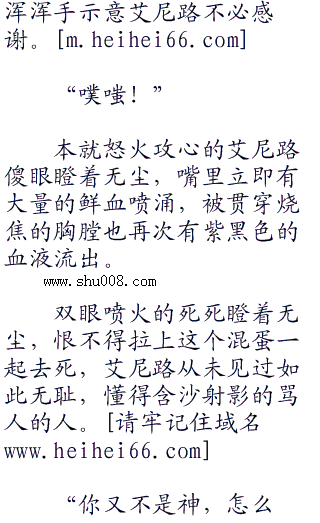 浑浑手示意艾尼路不必感
谢。[m.heihei66.com]
“噗嗤！”
本就怒火攻心的艾尼路
傻眼瞪着无尘，嘴里立即有
大量的鲜血喷涌，被贯穿烧
焦的胸膛也再次有紫黑色的
血液流出。
www.shu008.com
双眼喷火的死死瞪着无
尘，恨不得拉上这个混蛋一
起去死，艾尼路从未见过如
此无耻，懂得含沙射影的骂
人的人。[请牢记住域名
www.heihei66.com]
“你又不是神，怎么